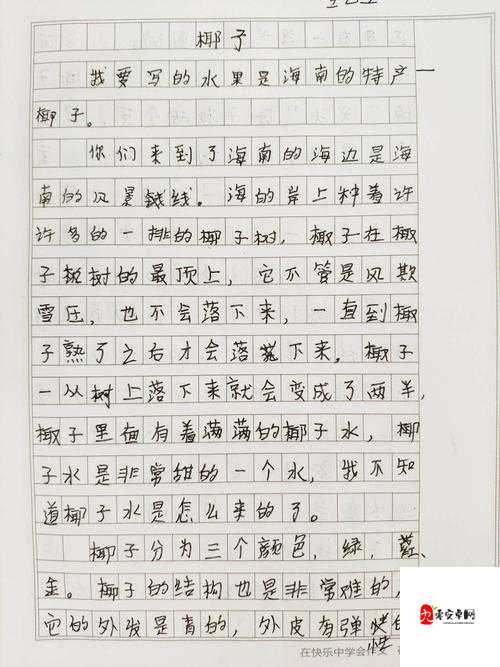 椰子
我要写的水果是海南的特产一
椰子。
你们来到了海南的海边是海
南的风景线。海的岸上种着许
许多的一排的椰子树，椰子在椰
子树的最顶上，它不管是风欺
雪压，也不会落下来，一直到椰
子熟了之后才会落下来。椰子
一从树上落下来就会变成了两半，
椰子里面有着满满的椰子水，椰
子水是非常甜的一个水，我不知
道椰子水是怎么来的了。
椰子分为三个颜色，绿，红、
金。椰子的结构也是非常难的，
它的外发是青的，外皮有弹性
在快乐中学会作文
零安卓网